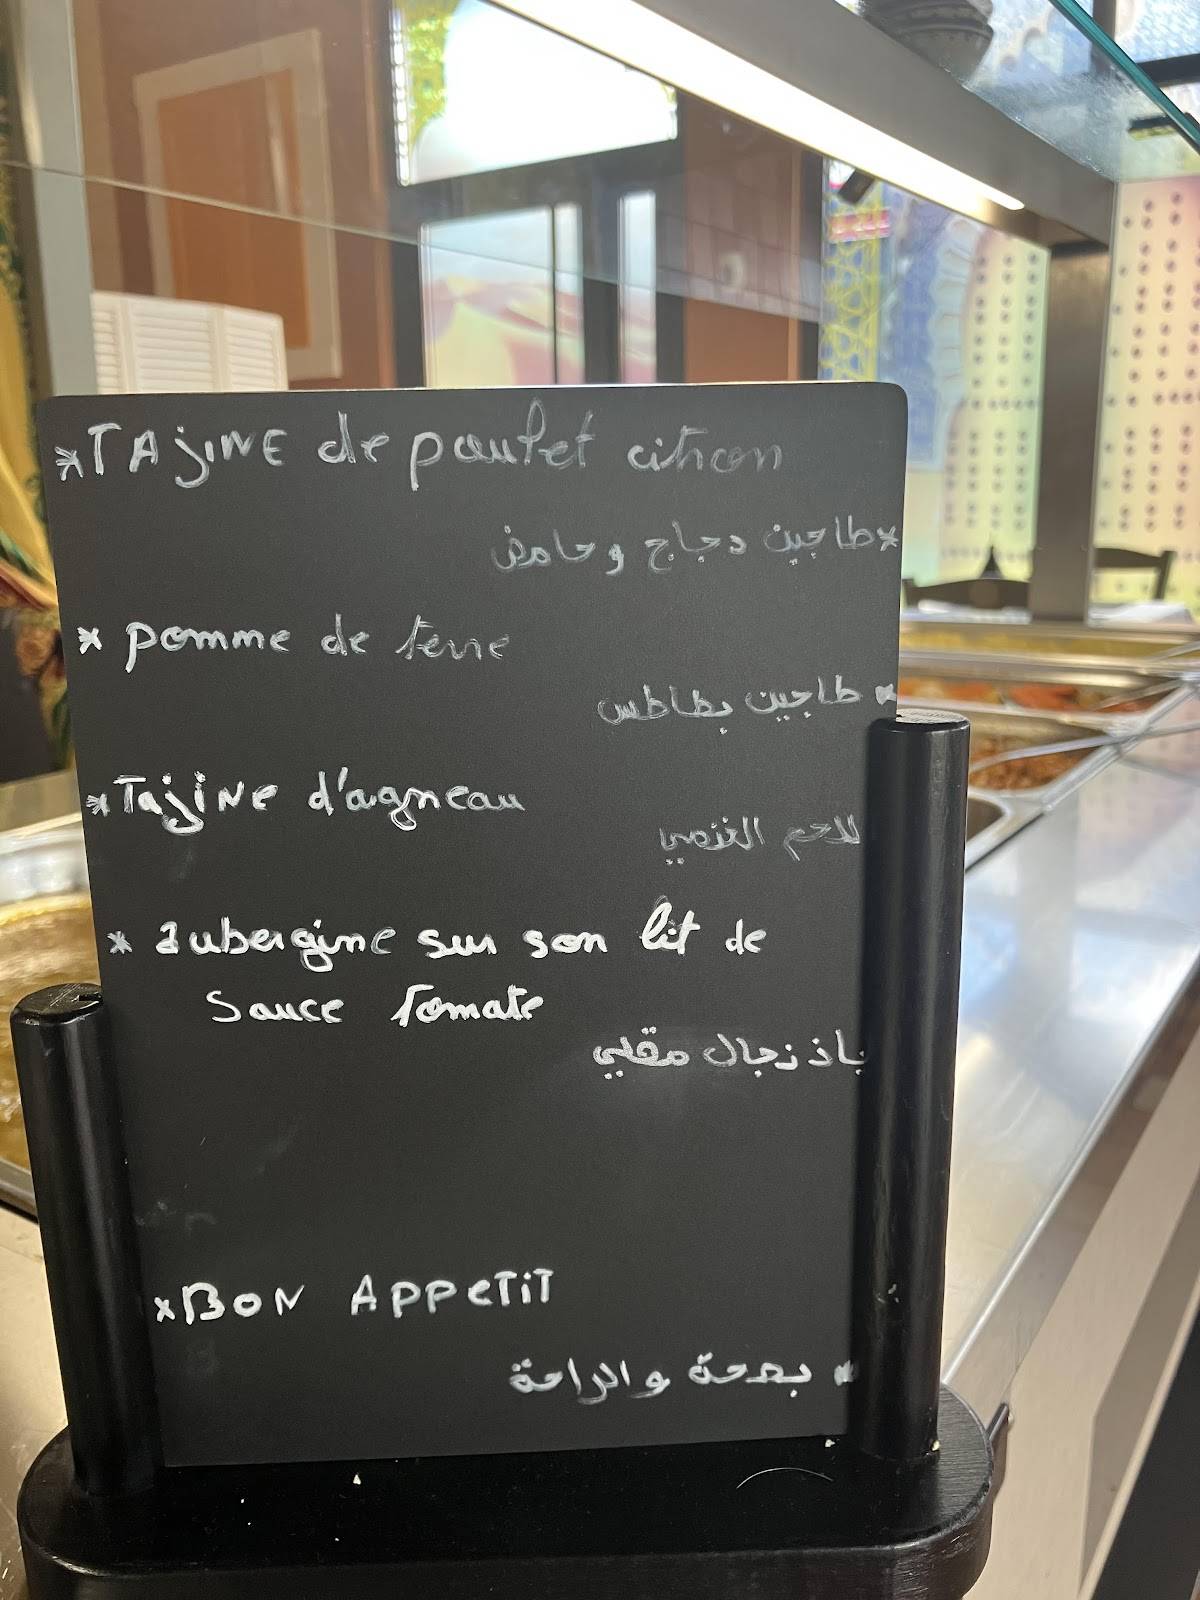 *TAjiNE de poulet citron
*طاجين دجاج وحامض
* pomme de terre
* طاجين بطاطس
*TajiNe d'agneau
للحم الغنمي
* aubergine sur son lit de
Sauce Tomate
باذزجال مقلي
*BON APPeTiT
* بصحة والراحة